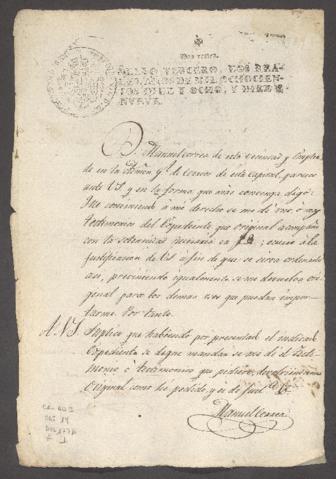 Dos reales.
SELLO TERCERO, DOS REA-
LES, AÑOS DE MIL OCHOCIEN-
TOS DIEZ Y OCHO, Y DIEZ Y
NUEVE.
D. Manuel Correa de esta vecindad y
en la de Correos de esta Capital, parezco
ante VS y en la forma que más convenga digo:
Que conviniendo á mi derecho se me dé uno ó mas
testimonios del Expediente que original acompaño
con la solemnidad necesaria en ocurro á la
justificacion de VS á fin de que se sirva ordenarlo
asi, previniendo igualmente se me devuelva ori-
ginal para los demas usos que puedan impor-
tarme. Por tanto.
A VS Suplico que habiendo por presentado el
Expediente se digne mandar se me dé el testi-
monio ó testimonios que pidiere, devolviendome
original como llevo pedido y es de justᵃ
Manuel Correa